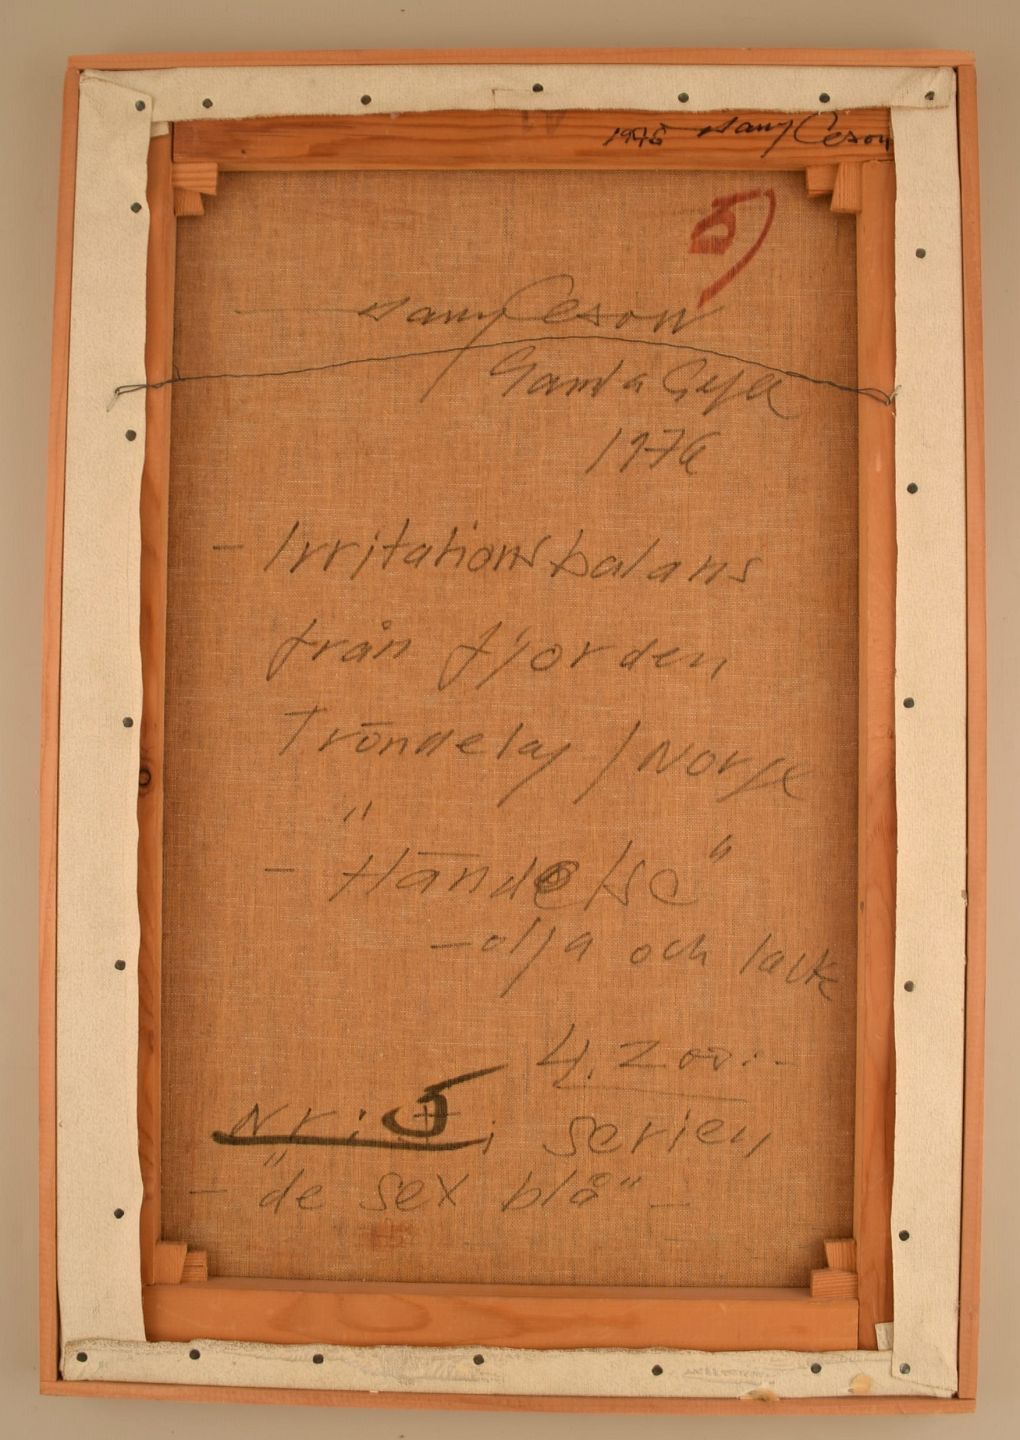 1976 Dany Ceson
5)
Dany Ceson
Gamla Gefle
1976
- Irritationsbalans
från fjorden
Tröndelag / Norge
"
- Händelse"
- olja och lack
4.200:-
Nr: 5 i serien
- "de sex blå" -